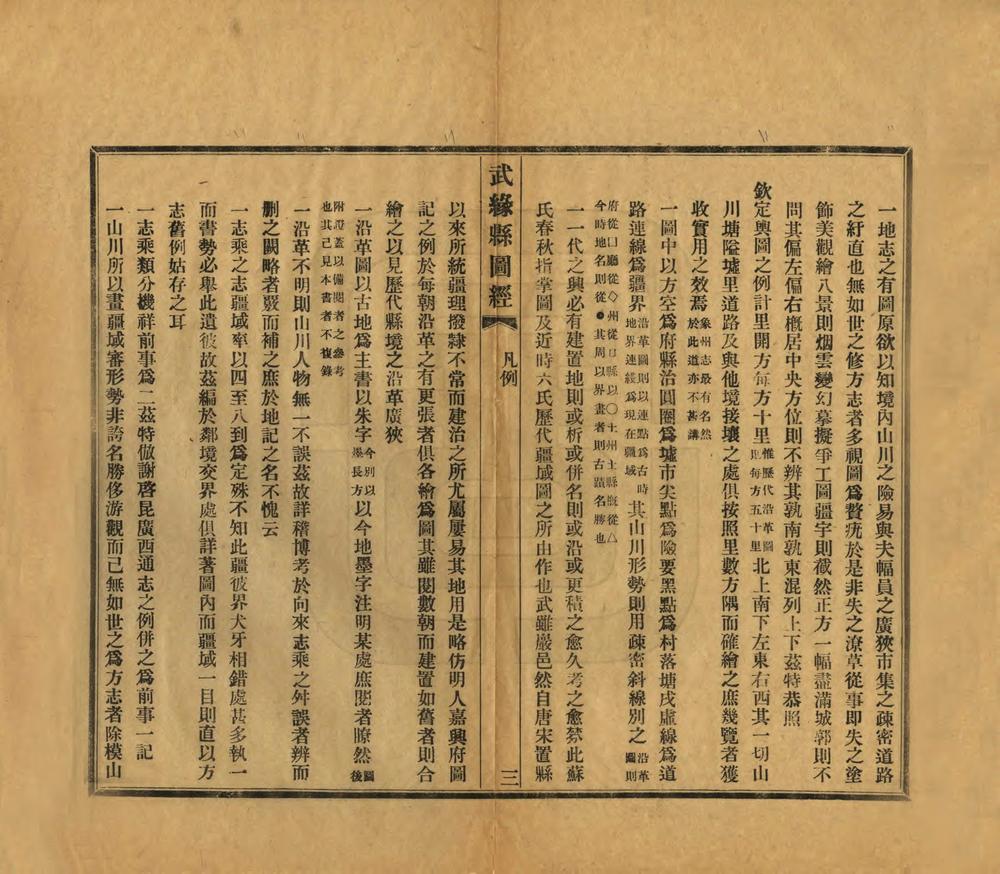 一地志之有圖原欲以知境內山川之險易與夫幅員之廣狹市集之疎密道路
之紆直也無如世之修方志者多視圖爲贅疣於是非失之潦草從事即失之塗
飾美觀繪八景則烟雲變幻摹擬爭工圖疆宇則截然正方一幅盡滿城郭則不
問其偏左偏右槪居中央方位則不辨其孰南孰東混列上下茲特恭照
欽定輿圖之例計里開方每方十里惟歷代沿革圖則每方五十里北上南下左東右西其一切山
川塘隘墟里道路及與他境接壤之處俱按照里數方隅而確繪之庶幾覽者獲
收實用之效焉象州志最有名然於此道亦不甚講
一圖中以方空爲府縣治圓圈爲墟市尖點爲險要黑點爲村落塘戌虛線爲道
路連線爲疆界沿革圖則以連點爲古時地界連綫爲現在疆域其山川形勢則用疎密斜線別之沿革圖則
府從囗廳從◇州從口縣以〇土州土縣槪從△今時地名則從●其周以界畫者則古蹟名勝也
一一代之興必有建置地則或析或併名則或沿或更積之愈久考之愈棼此蘇
氏春秋指掌圖及近時六氏歷代疆域圖之所由作也武雖巖邑然自唐宋置縣
武緣縣圖經 凡例 三
以來所統疆理撥隸不常而建治之所尤屬屢易其地用是略仿明人嘉興府圖
記之例於每朝沿革之有更張者俱各繪爲圖其雖閱數朝而建置如舊者則合
繪之以見歷代縣境之沿革廣狹
一沿革圖以古地爲主書以朱字今別以墨長方以今地墨字注明某處庶閱者瞭然圖後
附證蓋以備閱者之叅考也其已見本書者不複錄
一沿革不明則山川人物無一不誤茲故詳稽博考於向來志乘之舛誤者辨而
刪之闕略者覈而補之庶於地記之名不愧云
一志乘之志疆域率以四至八到爲定殊不知此疆彼界犬牙相錯處甚多執一
而書勢必舉此遺彼故茲編於鄰境交界處俱詳著圖內而疆域一目則直以方
志舊例姑存之耳
一志乘類分機祥前事爲二茲特倣謝啓昆廣西通志之例併之爲前事一記
一山川所以畫疆域審形勢非誇名勝侈游觀而已無如世之爲方志者除模山